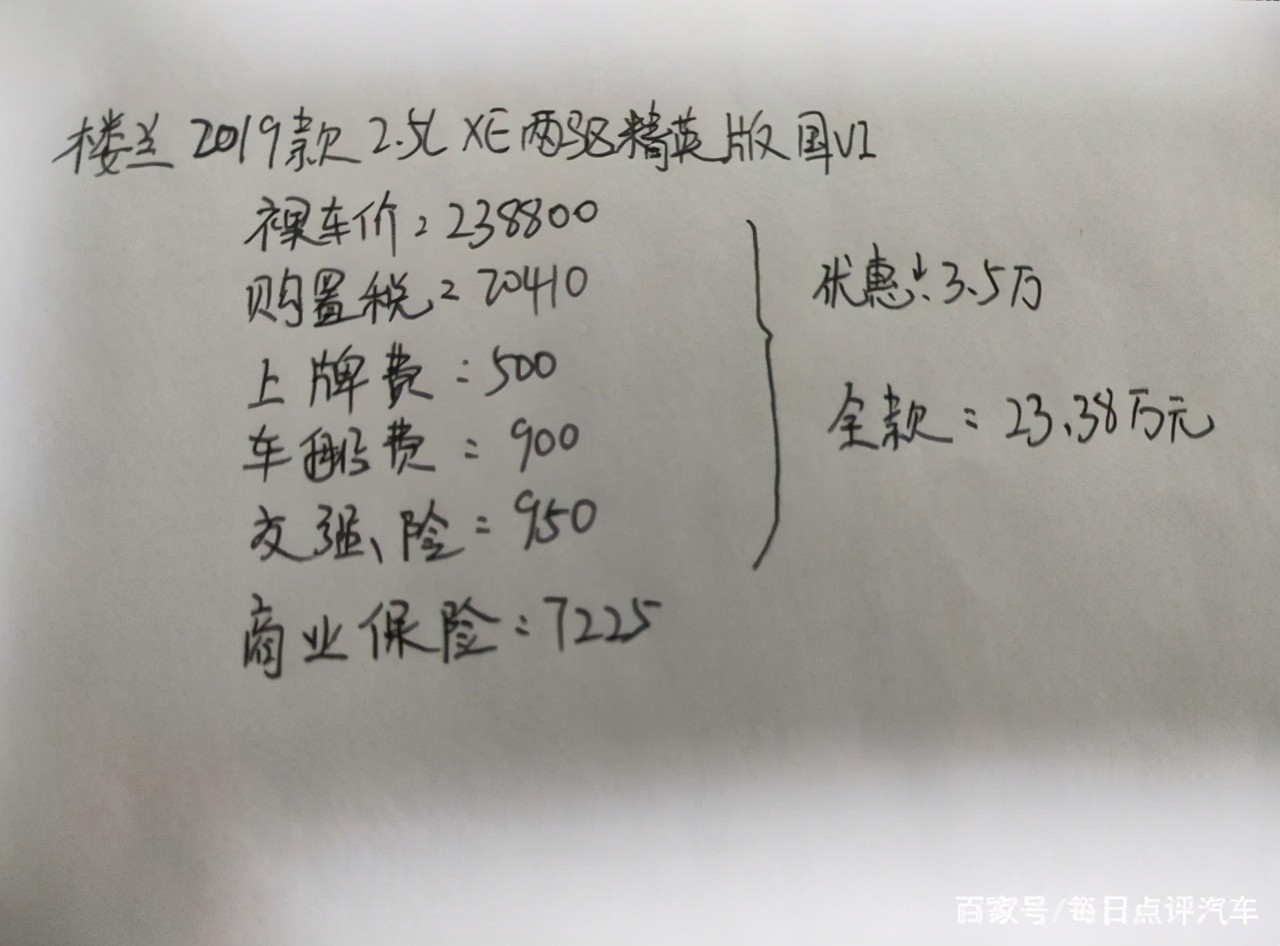 楼兰 2019款 2.5L XE两驱精英版国VI
裸车价:238800
购置税:20410
上牌费:500
车船费:900
交强险:950
商业保险:7225
优惠↓:3.5万
全款:23.38万元
百家号/每日点评汽车